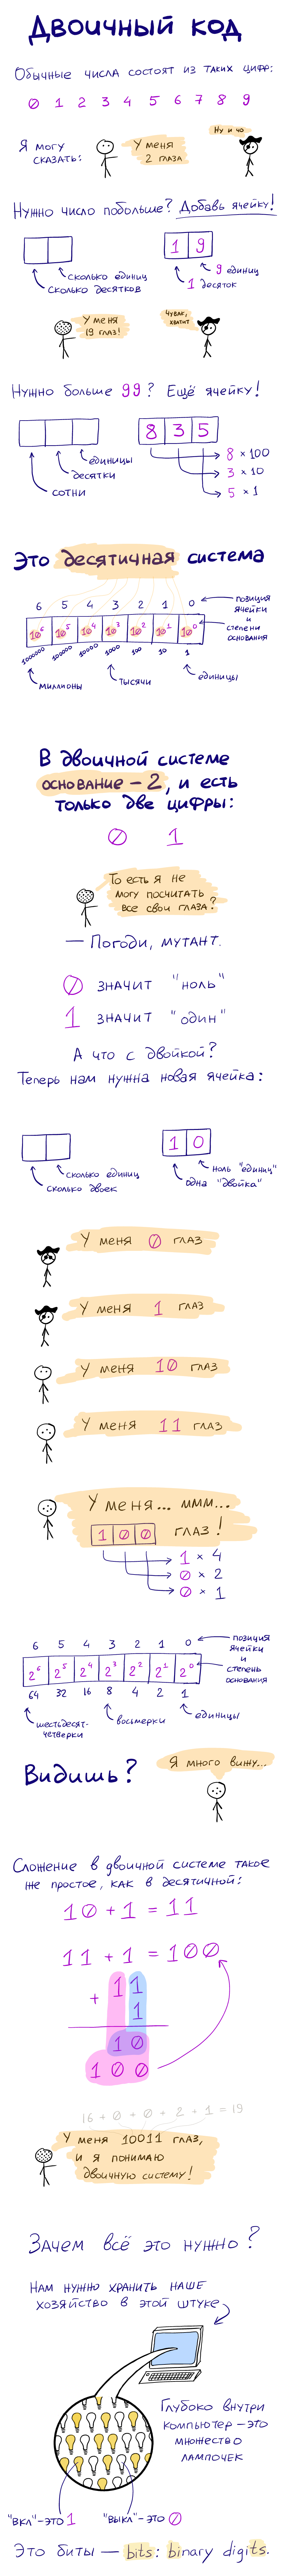 Двоичный код
Обычные числа состоят из таких цифр:
0 1 2 3 4 5 6 7 8 9
Ну и чо
Я могу
сказать:
У меня
2 глаза
Нужно число побольше? Добавь ячейку!
1 9
сколько единиц
сколько десятков
9 единиц
1 десяток
У меня
19 глаз!
Чувак,
хватит
Нужно больше 99? Ещё ячейку!
8 3 5
единицы
десятки
сотни
8 × 100
3 × 10
5 × 1
Это десятичная система
6 5 4 3 2 1 0
позиция
ячейки
и
степени
основания
10⁶ 10⁵ 10⁴ 10³ 10² 10¹ 10⁰
1000000 100000 10000 1000 100 10 1
миллионы
тысячи
единицы
В двоичной системе
основание – 2, и есть
только две цифры:
0 1
То есть я не
могу посчитать
все свои глаза?
— Погоди, мутант.
0 значит "ноль"
1 значит "один"
А что с двойкой?
Теперь нам нужна новая ячейка:
1 0
сколько единиц
сколько двоек
ноль "единиц"
одна "двойка"
У меня 0 глаз
У меня 1 глаз
У меня 10 глаз
У меня 11 глаз
У меня... ммм...
1 0 0 глаз!
1 × 4
0 × 2
0 × 1
6 5 4 3 2 1 0
позиция
ячейки
и
степень
основания
2⁶ 2⁵ 2⁴ 2³ 2² 2¹ 2⁰
64 32 16 8 4 2 1
шестьдесят-
четверки
восьмерки
единицы
Видишь?
Я много вижу...
Сложение в двоичной системе такое
же простое, как в десятичной:
10 + 1 = 11
11 + 1 = 100
11
+
1
10
100
16 + 0 + 0 + 2 + 1 = 19
У меня 10011 глаз,
и я понимаю
двоичную систему!
Зачем всё это нужно?
Нам нужно хранить наше
хозяйство в этой штуке
Глубоко внутри
компьютер – это
множество
лампочек
"вкл" – это 1
"выкл" – это 0
Это биты — bits: binary digits.